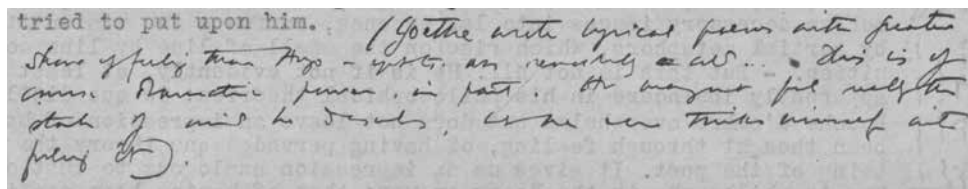 tried to put upon him. (Goethe write lyrical poems with greater
show of feeling than Hugo – yet is as remarkably cold... This is of
course Dramatic power, in part. He may not feel really the
state of mind he describes, as he even thinks himself into
feeling it).